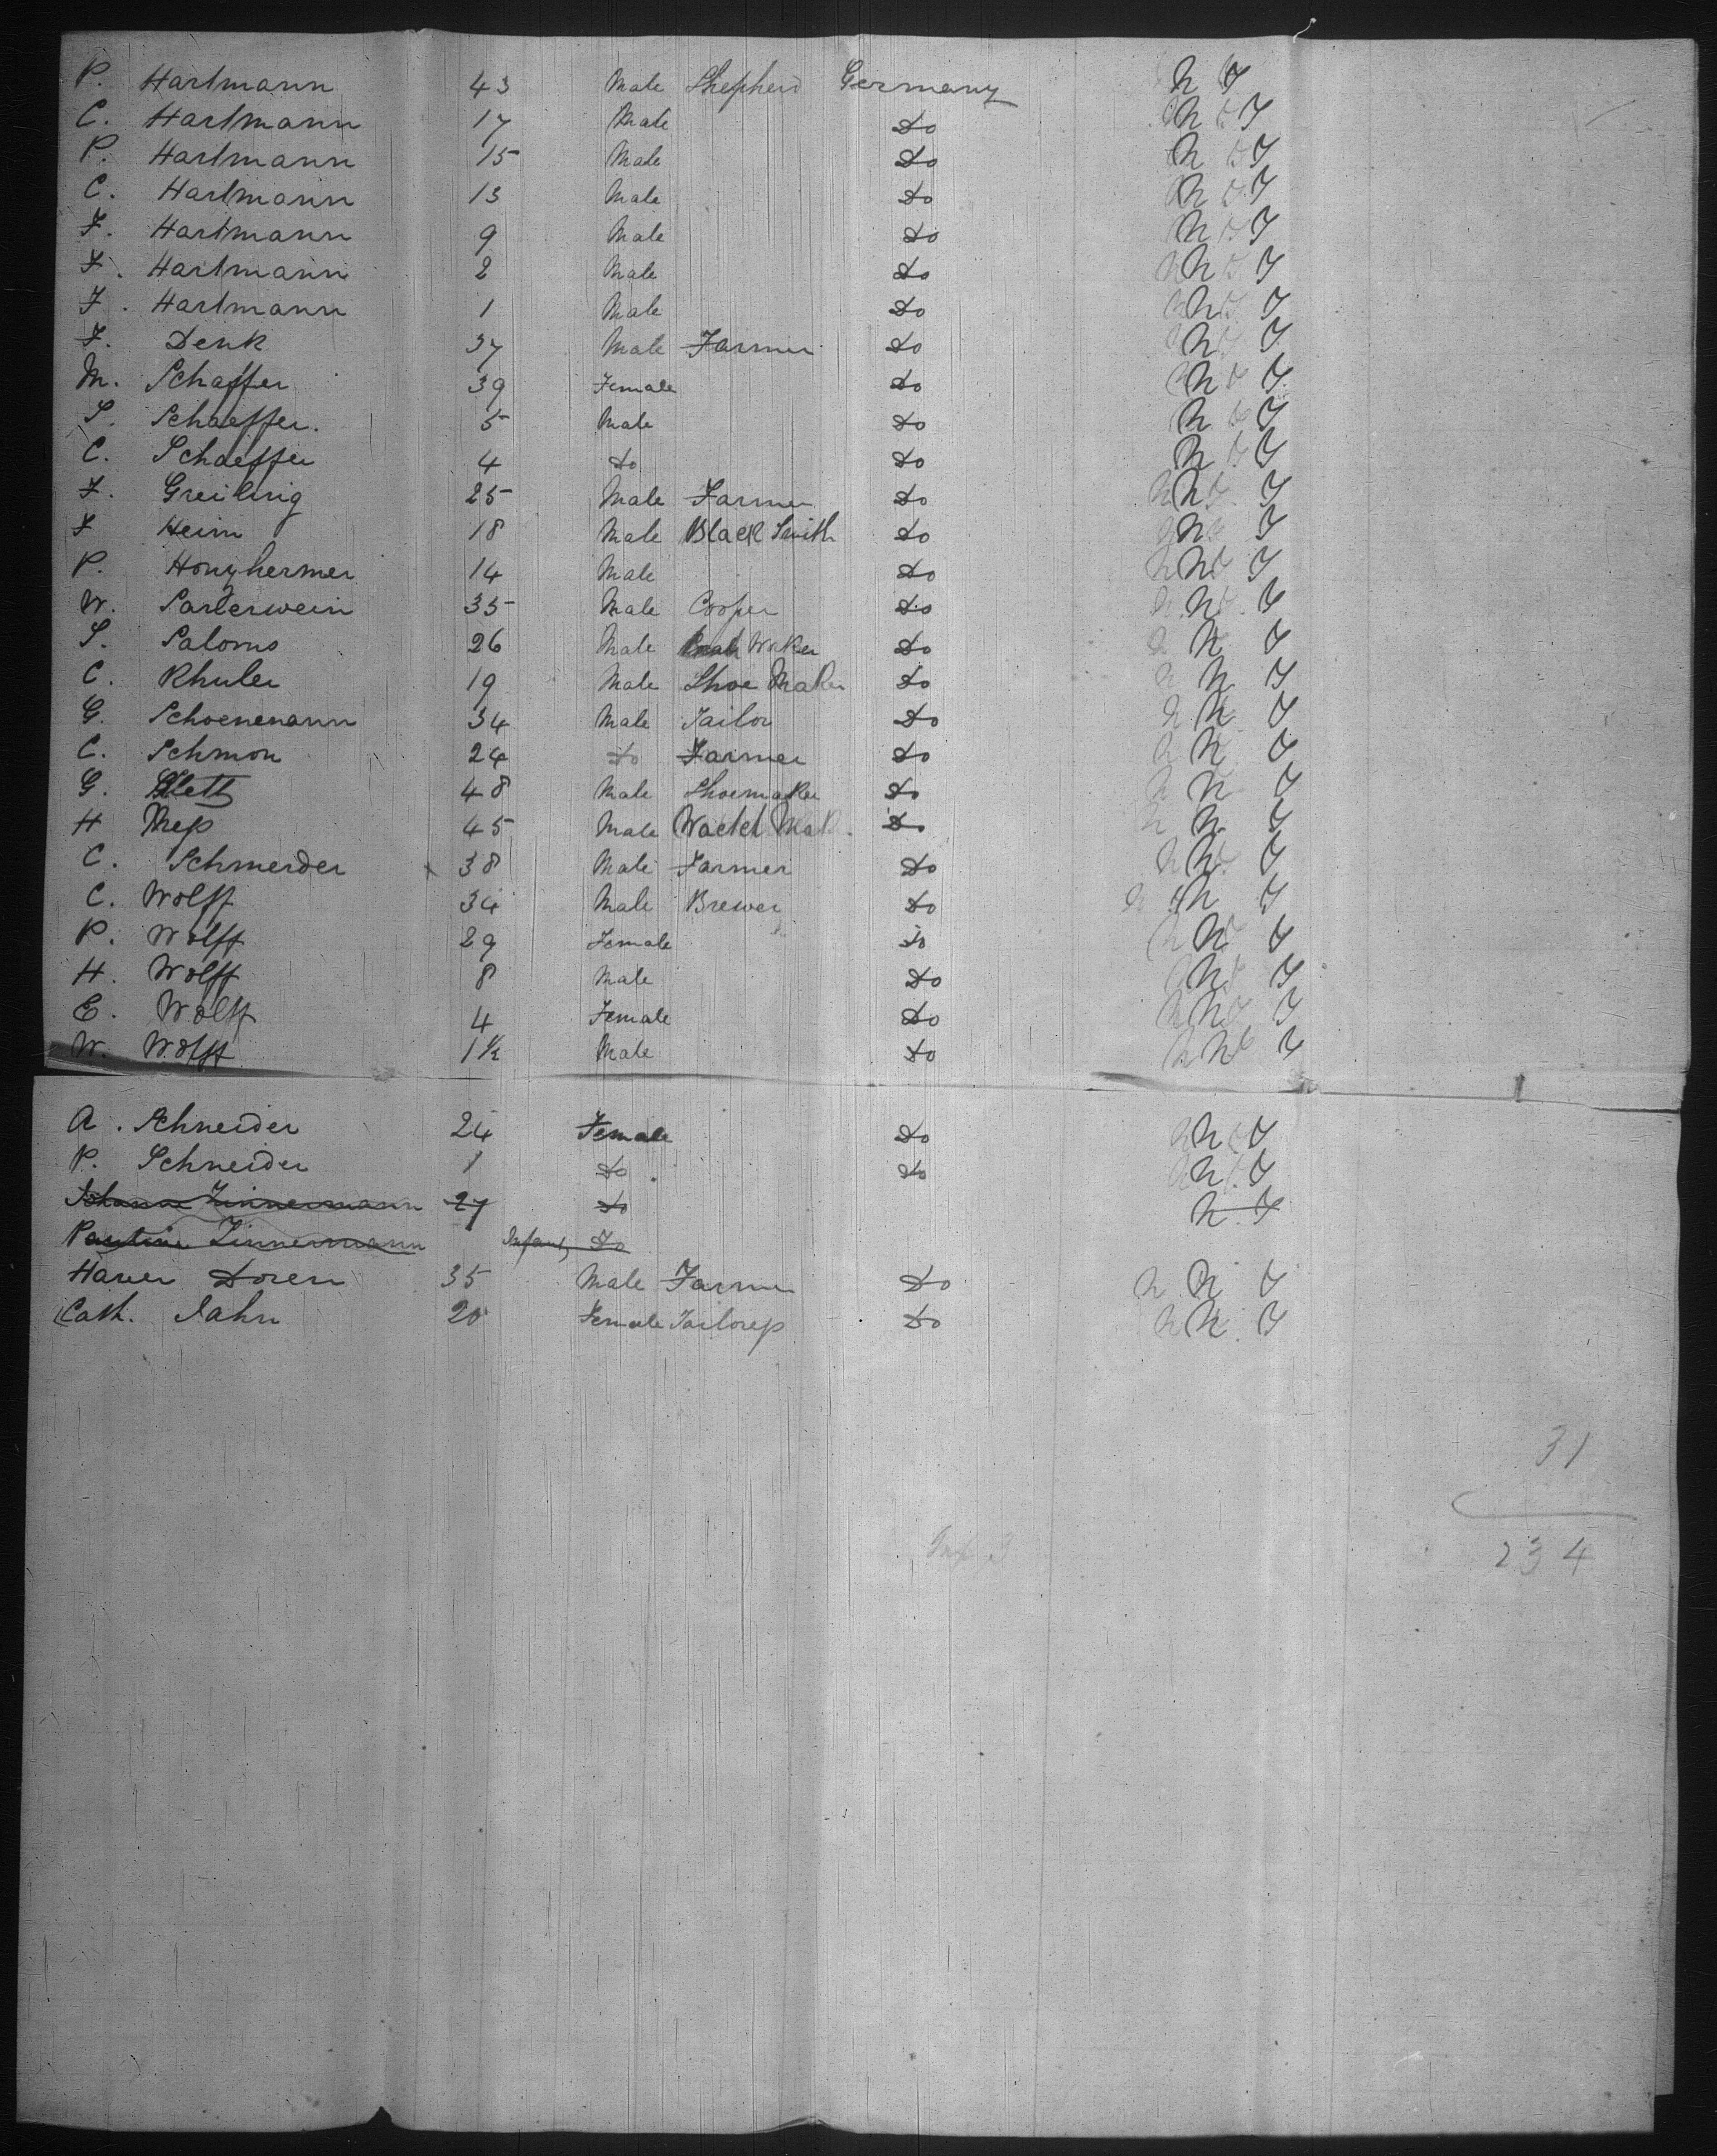 P. Hartmann 43 Male Shepherd Germany N Y
C. Hartmann 17 Male Do N Y
P. Hartmann 15 Male Do N Y
C. Hartmann 13 Male Do N Y
F. Hartmann 9 Male Do N Y
F. Hartmann 2 Male Do N Y
F. Hartmann 1 Male Do N Y
F. Denk 37 Male Farmer Do N Y
M. Schaffer 39 Female Do N Y
S. Schaeffer. 5 Male Do N Y
C. Schaeffer 4 Do Do N Y
F. Greilinig 25 Male Farmer Do N Y
F Heim 18 Male Black Smith Do N Y
P. Honyhermer 14 Male Do N Y
W. Sarlerwein 35 Male Cooper Do N Y
S. Saloms 26 Male Do N Y
C. Rhuler 19 Male Shoe Maker Do N Y
G. Schoenemann 34 Male Tailor Do N Y
C. Schmon 24 Do Farmer Do N Y
G. 48 Male Shoemaker Do N Y
H Mess 45 Male Do N Y
C. Schmerder 38 Male Farmer Do N Y
C. Wolff 34 Male Brewer Do N Y
P. Wolff 29 Female Do N Y
H. Wolff 8 Male Do N Y
E. Wolff 4 Female Do N Y
W. Wolff 1½ Male Do N Y
A. Schneider 24 Female Do N Y
P. Schneider 1 Do Do N Y
Johanne Zinnermann 27 Do N. Y
Pauline Zinnermann Infant Do
Haver Doren 35 Male Farmer Do N Y
Cath. Jahn 20 Female Tailoress Do N Y
31
234